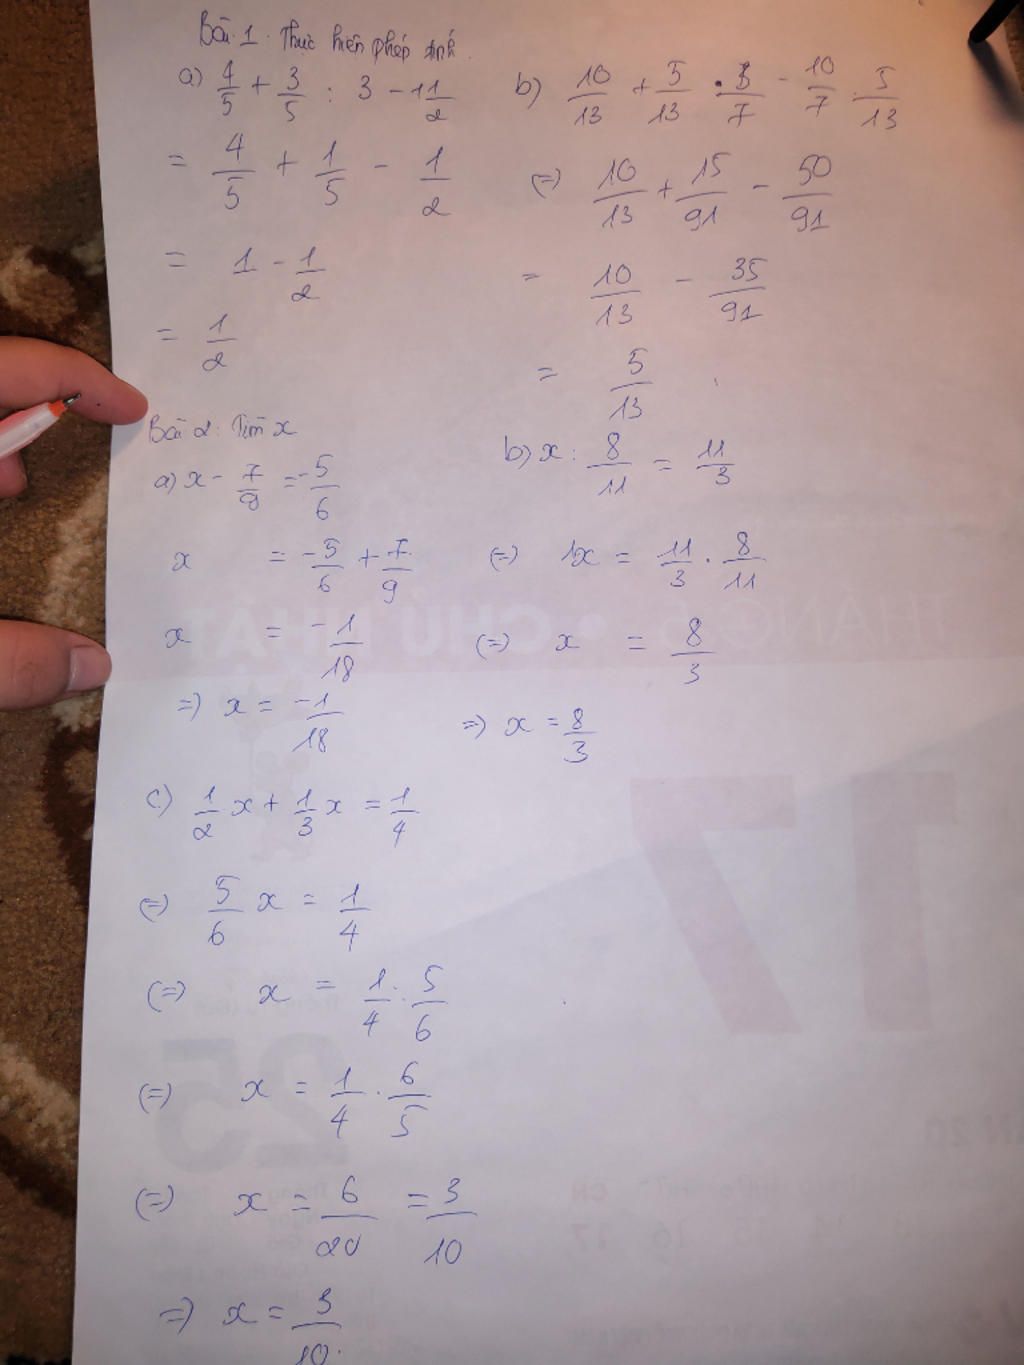 Bài 1. Thực hiện phép tính.
a) 4/5 + 3/5 : 3 - 1/2
= 4/5 + 1/5 - 1/2
= 1 - 1/2
= 1/2
b) 10/13 + 5/13 . 3/7 - 10/7 . 5/13
(=) 10/13 + 15/91 - 50/91
= 10/13 - 35/91
= 5/13
Bài 2: Tìm x
a) x - 7/9 = -5/6
x = -5/6 + 7/9
x = -1/18
=) x = -1/18
b) x : 8/11 = 11/3
(=) x = 11/3 . 8/11
(=) x = 8/3
=) x = 8/3
c) 1/2 x + 1/3 x = 1/4
(=) 5/6 x = 1/4
(=) x = 1/4 : 5/6
(=) x = 1/4 . 6/5
(=) x = 6/20 = 3/10
=) x = 3/10.
THÁNG 5 • CHỦ NHẬT
17
25